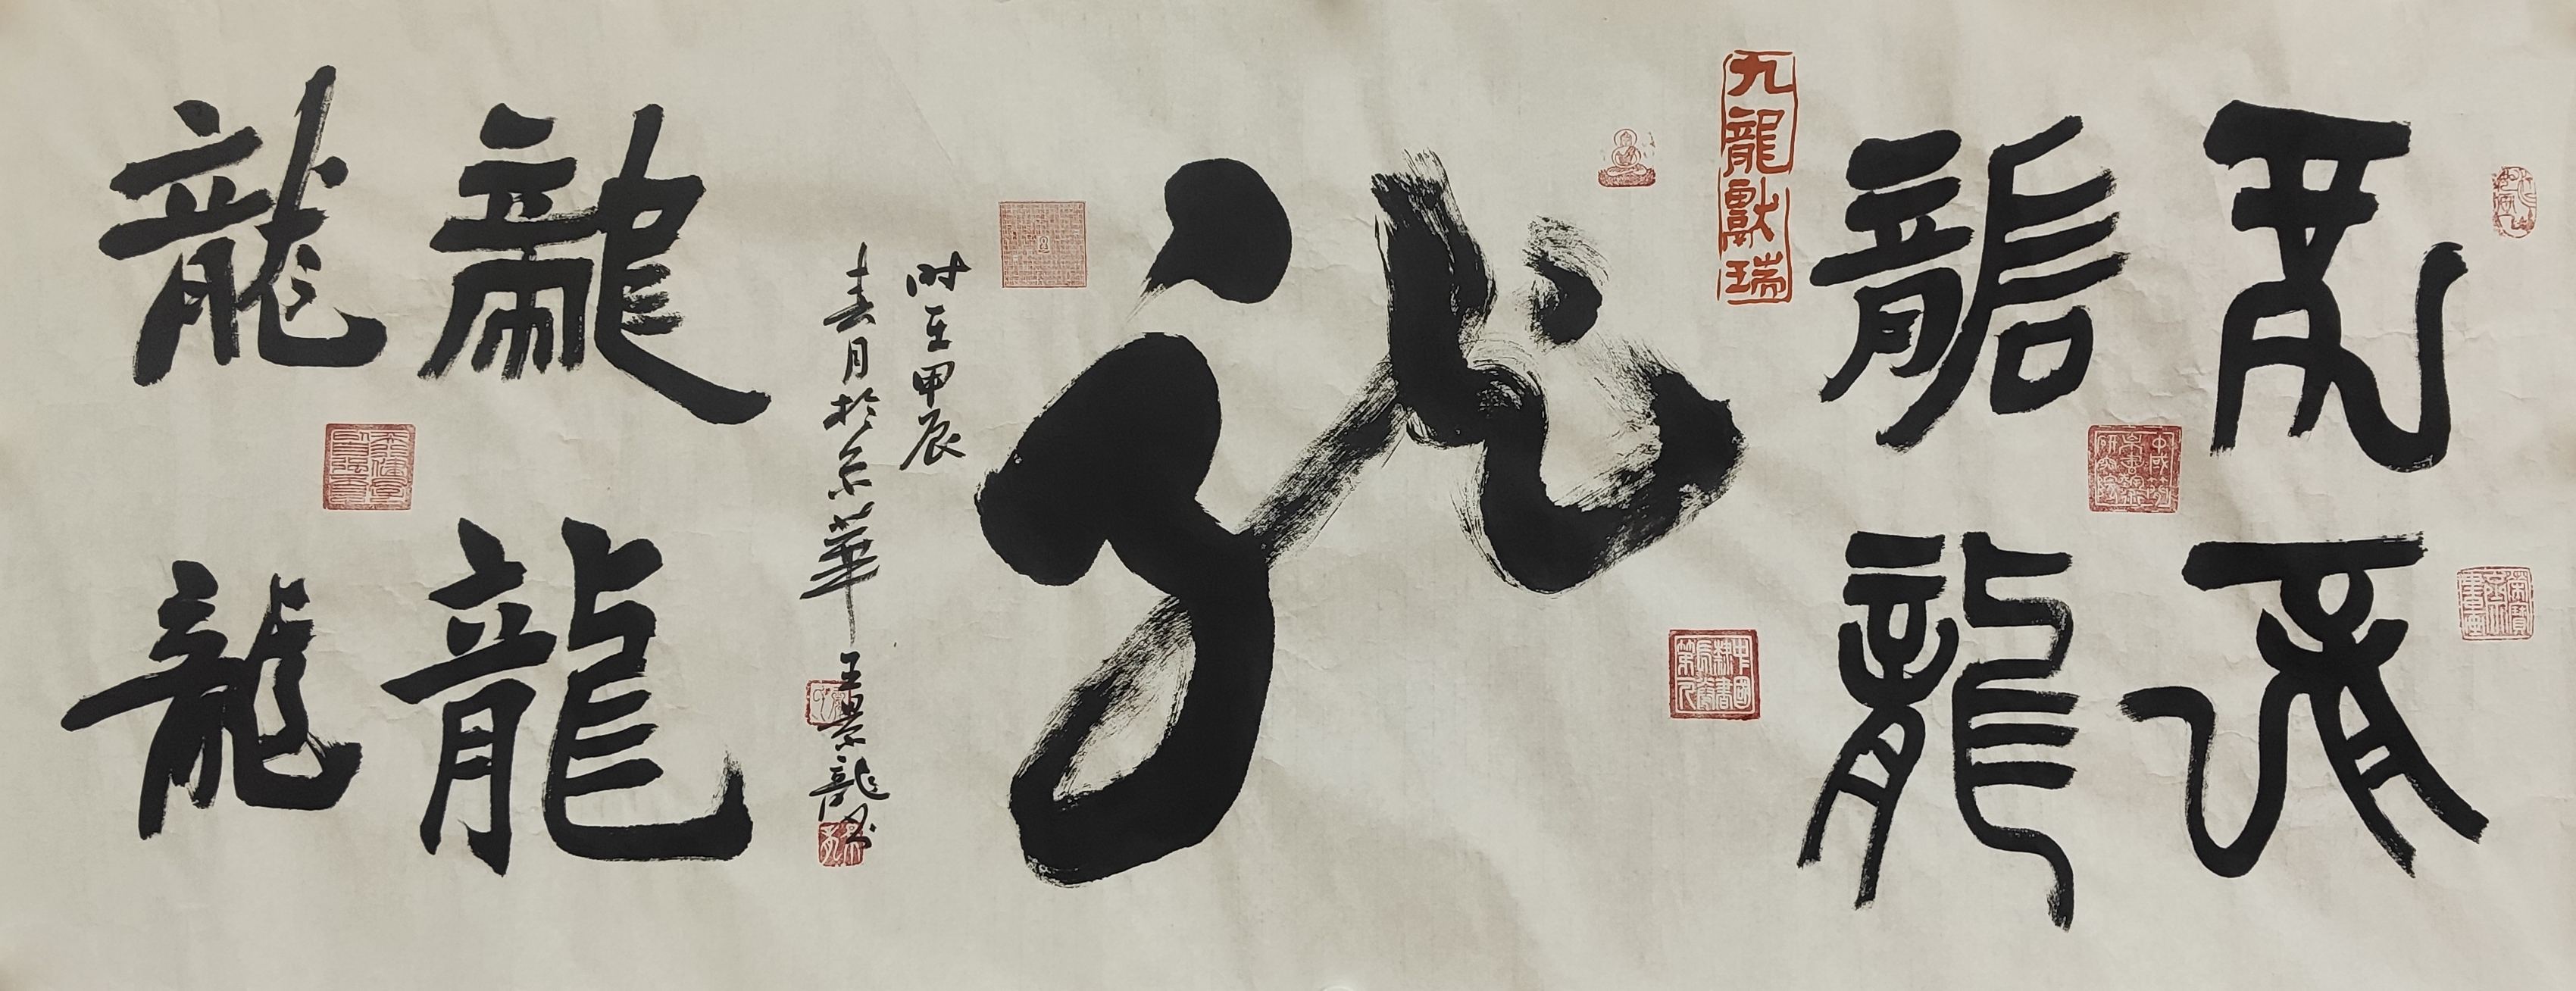 龍
龍
龍
龍
九龍獻瑞
龍
時在甲辰
春月於京華
王景龍書
龍
龍
龍
龍